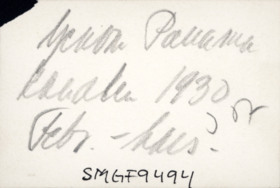 Igenom Panama
kanalen 1930
Febr. - Mars.
SMGF9494